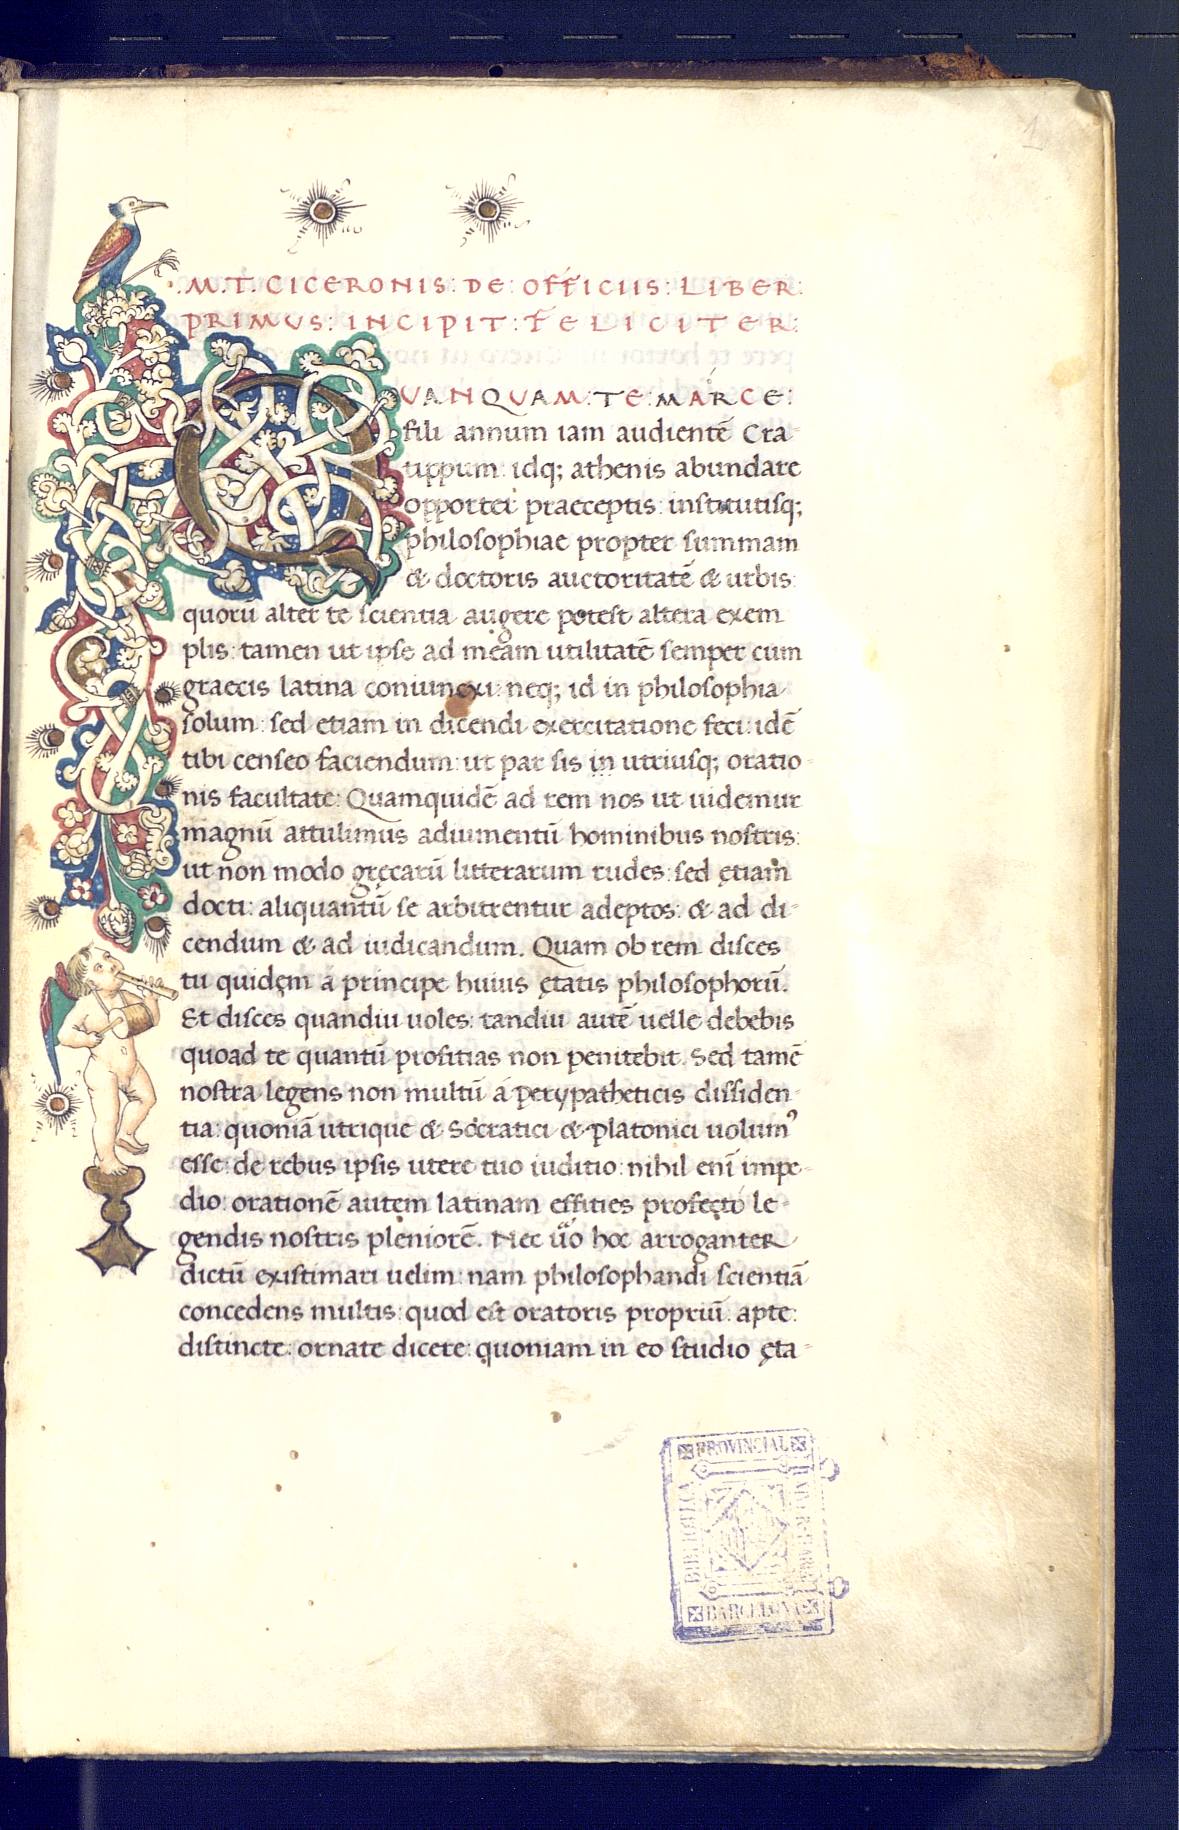 1
.M.T. CICERONIS: DE: OFFICIIS: LIBER:
PRIMUS: INCIPIT: FELICITER:
QUANQUAM: TE: MARCE:
fili annum iam audientē Cra-
tippum: idq; athenis abundare
opportet praeceptis: institutisq;
philosophiae propter summam
& doctoris auctoritatē & urbis:
quorū alter te scientia augere potest altera exem
plis: tamen ut ipse ad meam utilitatē semper cum
graecis latina coniunexi: neq; id in philosophia
solum: sed etiam in dicendi exercitatione feci: idē
tibi censeo faciendum: ut par sis in utriusq; oratio-
nis facultate: Quamquidē ad rem nos ut uidemur
magnū attulimus adiumentū hominibus nostris:
ut non modo gręcarū litterarum rudes: sed ętiam
docti: aliquantū se arbitrentur adeptos: & ad di-
cendum & ad iudicandum. Quam ob rem disces
tu quidęm a principe huius ętatis philosophorū.
Et disces quandiu uoles: tandiu autē uelle debebis
quoad te quantū profitias non penitebit. Sed tamē
nostra legens non multū a Perypatheticis dissiden-
tia: quoniā utrique & Socratici & Platonici uolumꝰ
esse: de rebus ipsis utere tuo iuditio: nihil enī impe-
dio: orationē autęm latinam effities profęcto le-
gendis nostris pleniorē. Nec ū̊o hoc arroganter
dictū existimari uelim: nam philosophandi scientiā
concedens multis: quod est oratoris propriū: apte:
distincte: ornate dicere: quoniam in eo studio ęta-
PROVINCIAL
BIBLIOTECA
BARCELONA